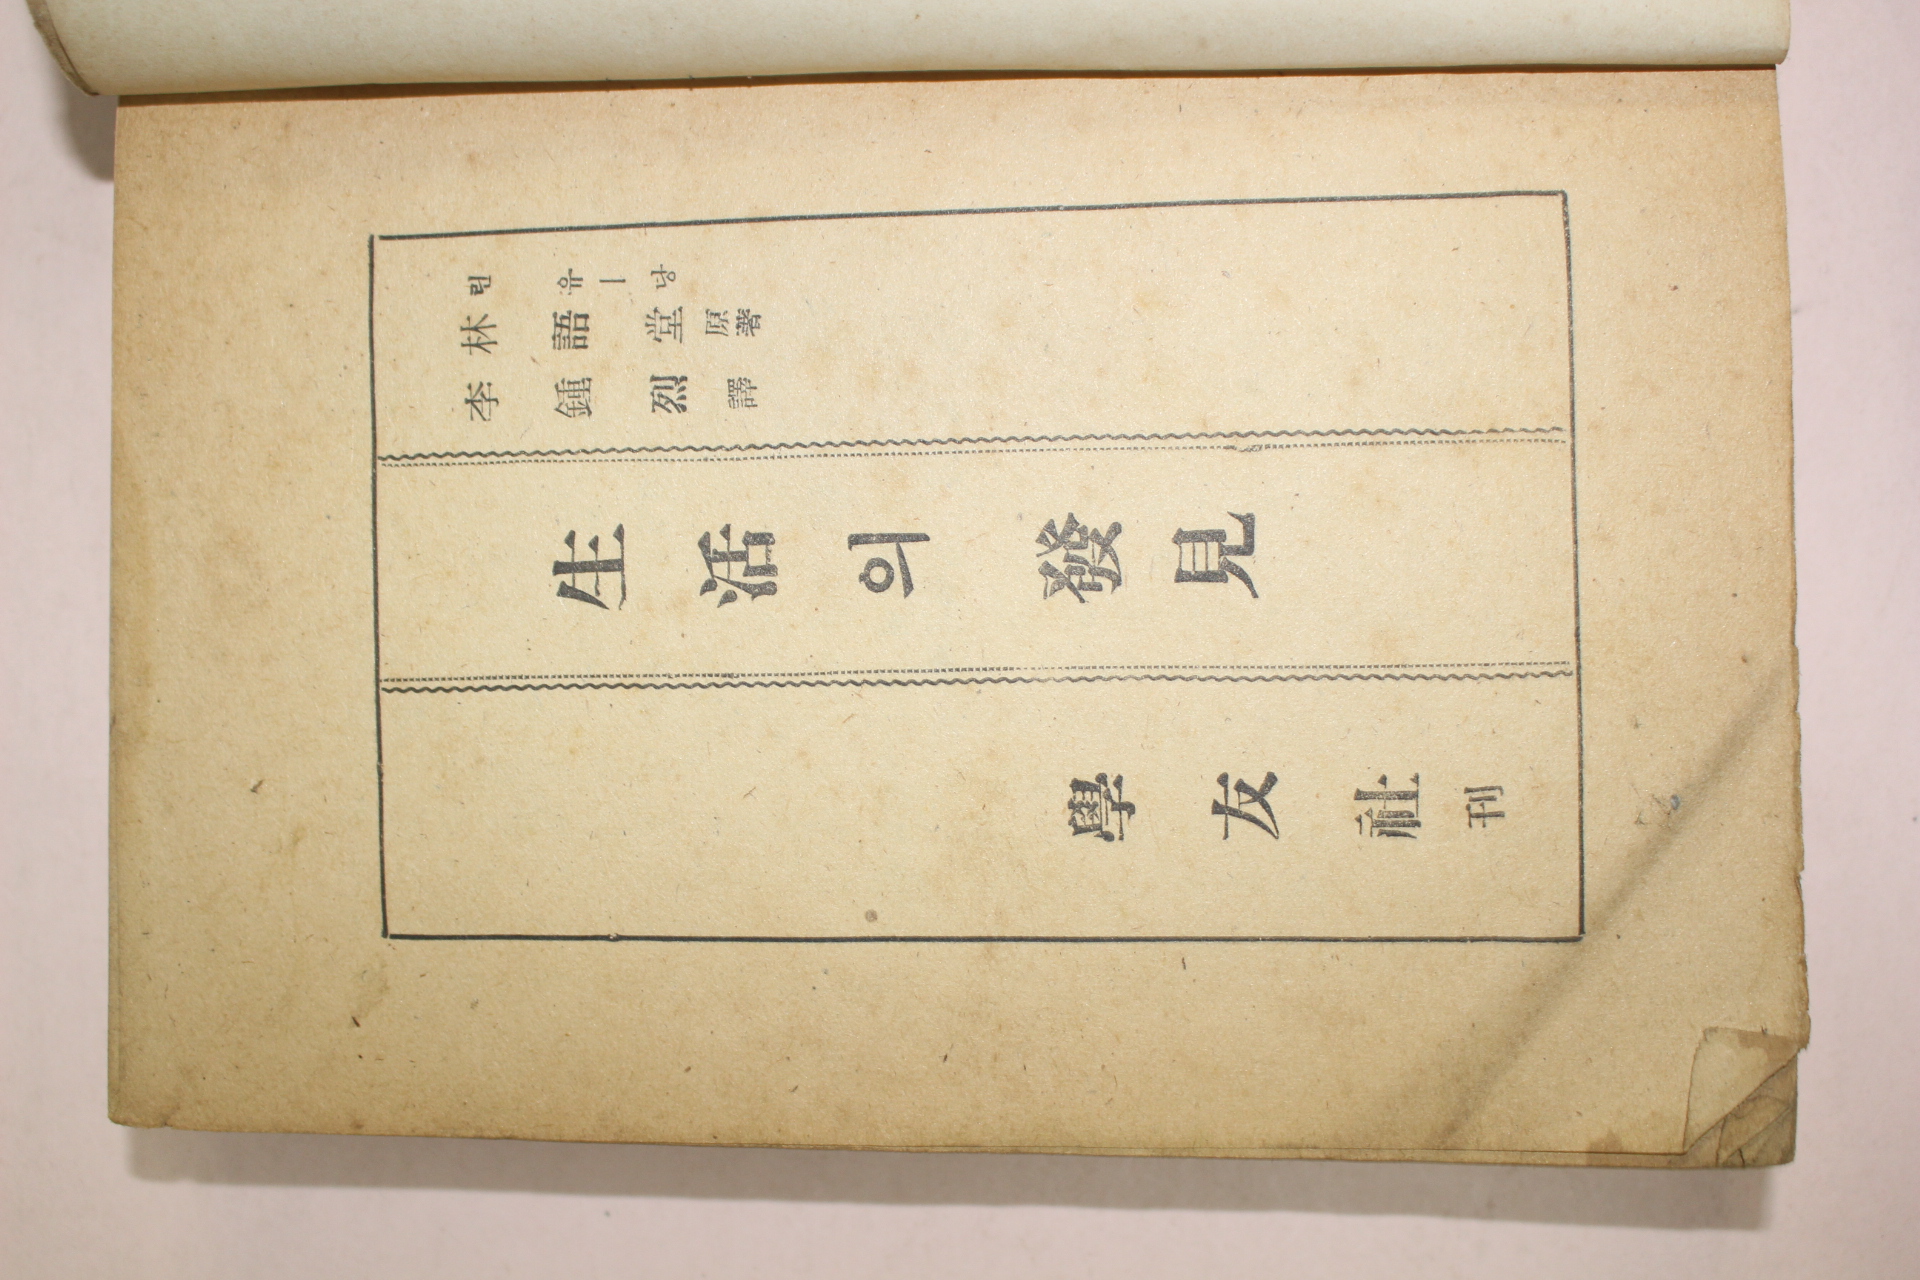 린유ー당
林語堂原著
李鍾烈譯
生活의 發見
學友社刊